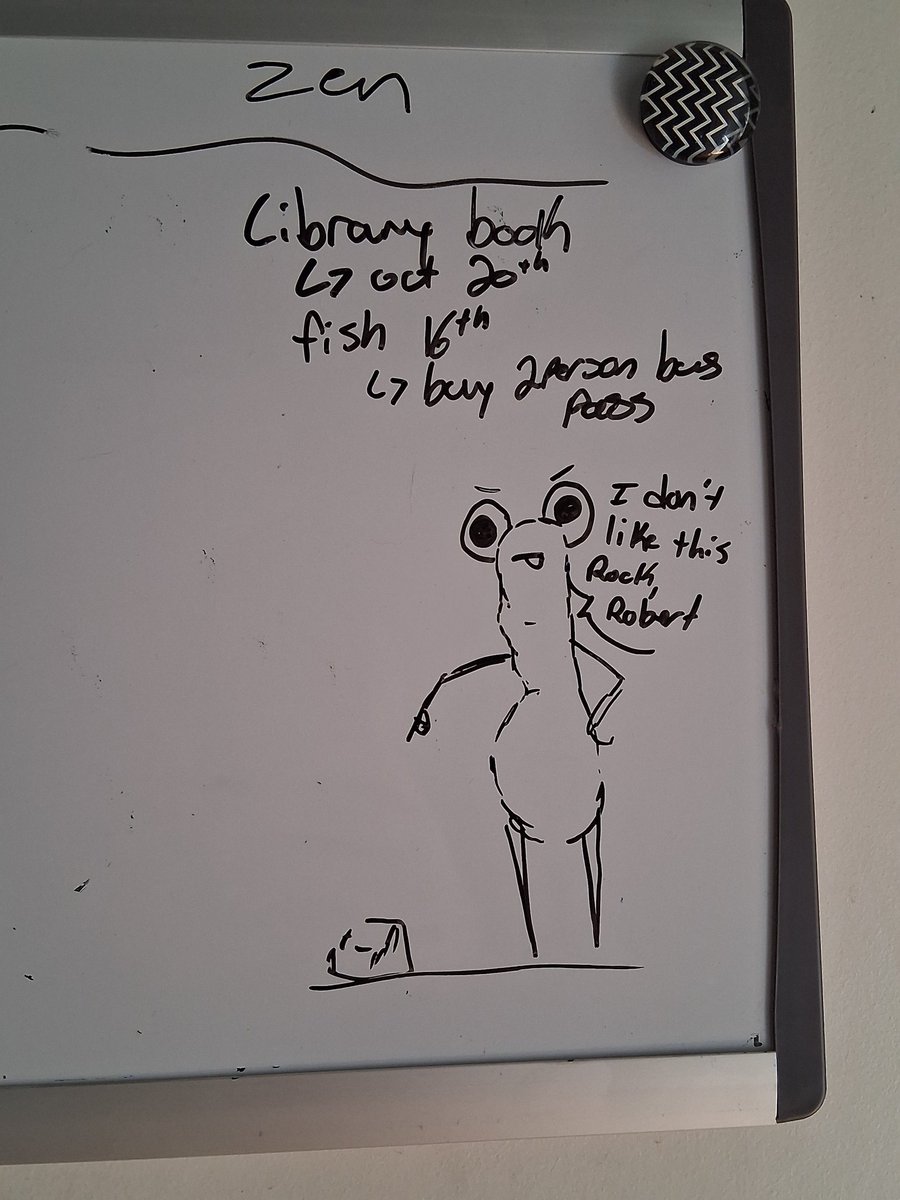 Zen
Library book
↳ oct 20th
fish 16th
↳ buy 2 person bus
pass
I don't
like this
Rock,
Robert